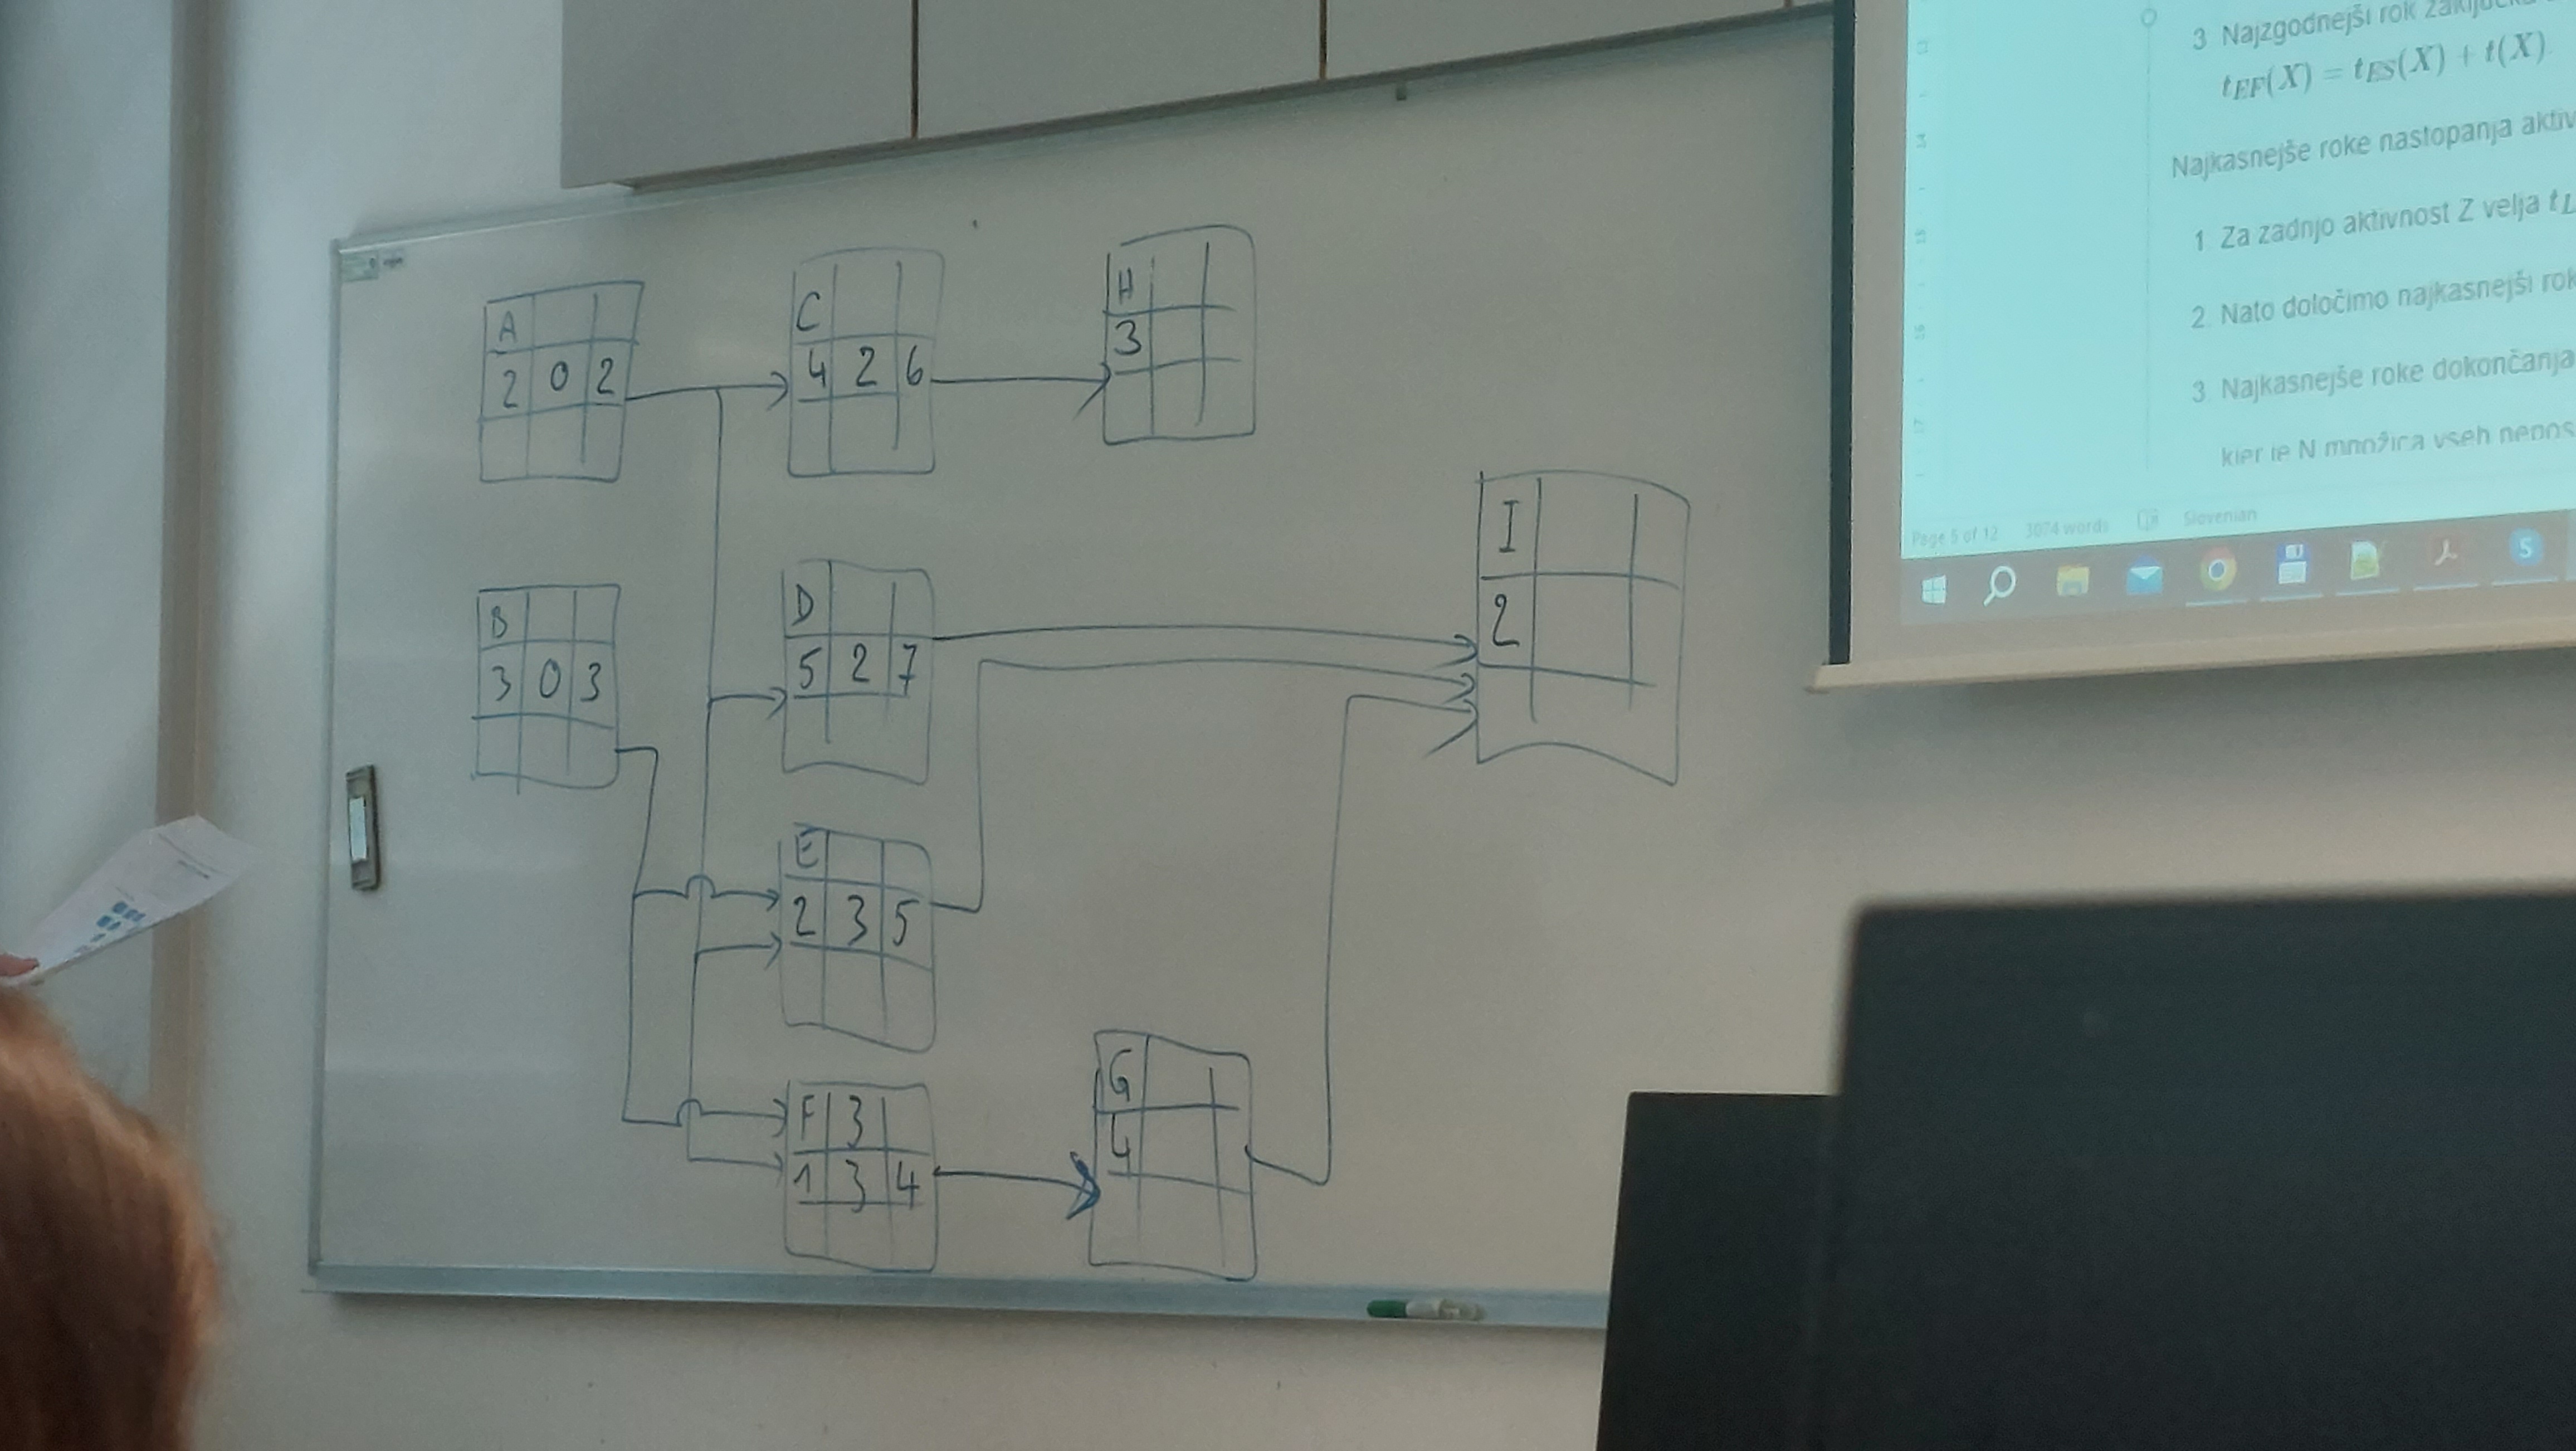 A
2 0 2
C
4 2 6
H
3
B
3 0 3
D
5 2 7
I
2
E
2 3 5
F 3
1 3 4
G
4
3 Najzgodnejši rok
tEF(X) = tES(X) + t(X)
Najkasnejše roke nastopanja
1 Za zadnjo aktivnost Z velja
2 Nato določimo najkasnejši
3 Najkasnejše roke dokončanja
kjer je N množica vseh
Page 5 of 12 3074 words Slovenian
S